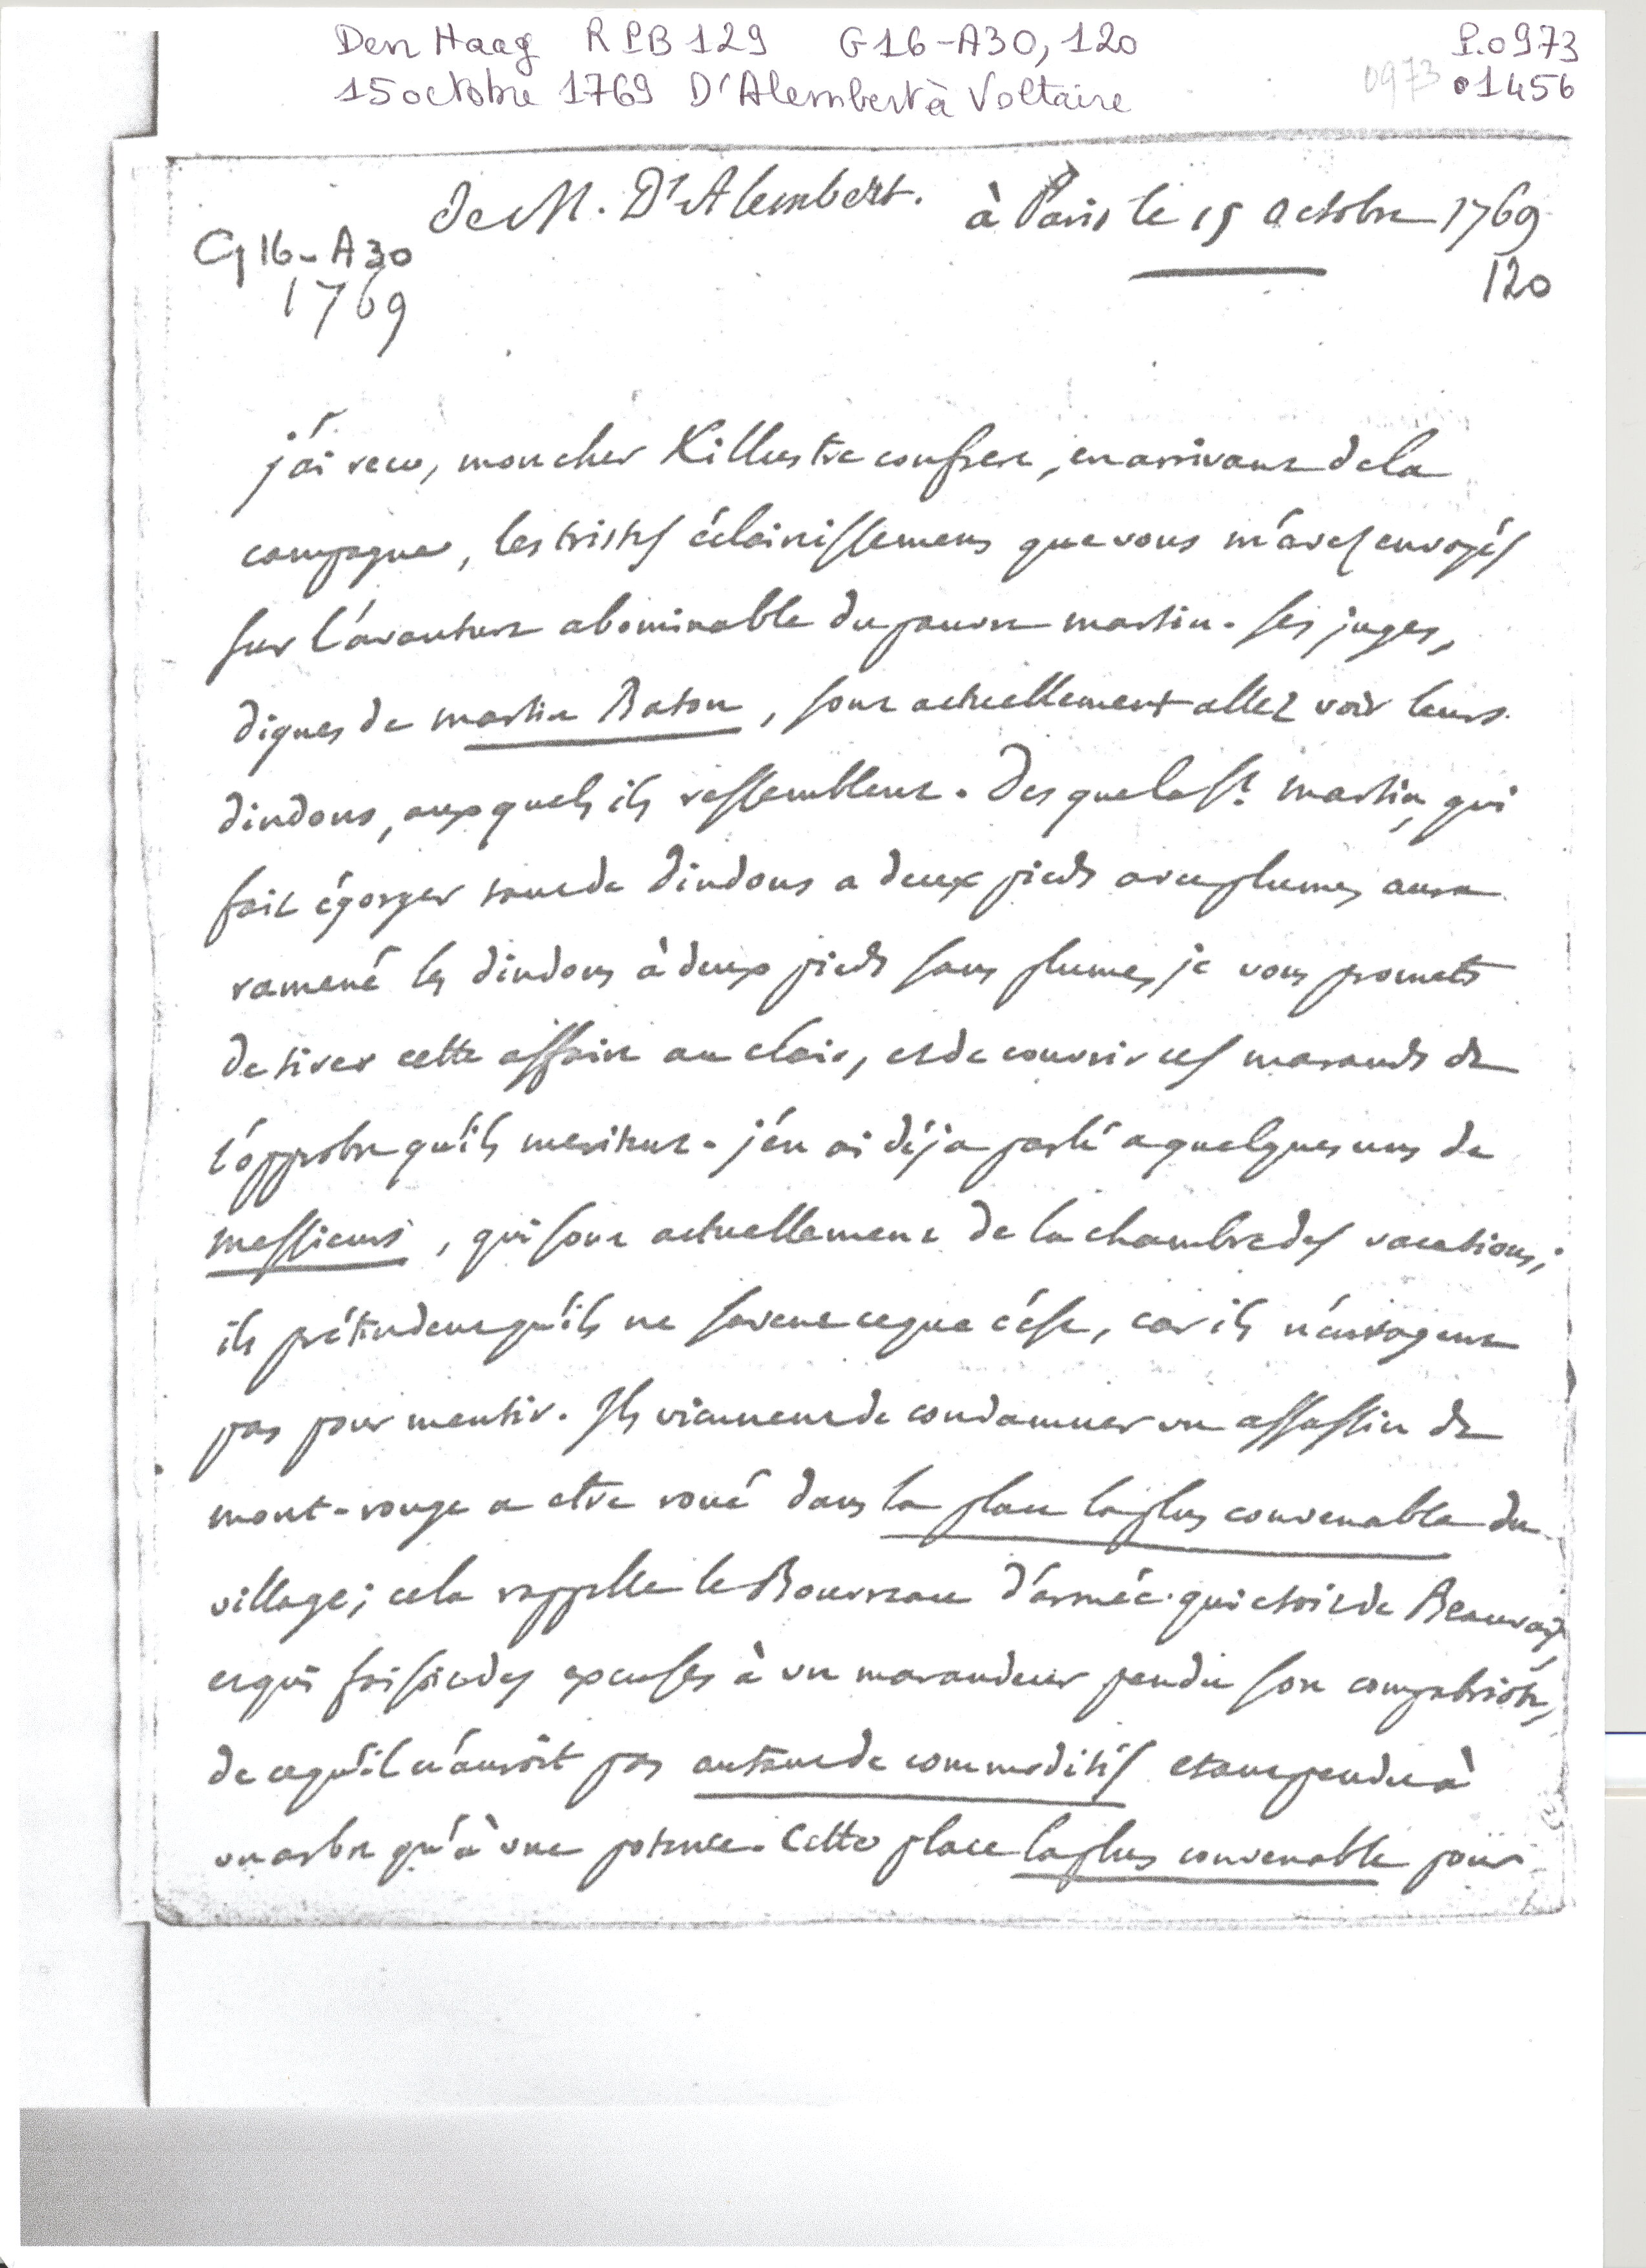 Den Haag RPB 129 G16-A30, 120 P.0973
15 octobre 1769 D'Alembert à Voltaire 0973 01456
de M. D'Alembert. à Paris le 15 octobre 1769
G16-A30
1769
120
j'ai recu, mon cher & illustre confrere, en arrivant de la
campagne, les tristes éclaircissemens que vous m'avez envoyés
sur l'avanture abominable du pauvre martin. ses juges,
dignes de martin Baton, sont actuellement allez voir leurs
dindons, auxquels ils ressemblent. Des que la St martin, qui
fait égorger tant de dindons a deux pieds avec plumes, aura
ramené les dindons à deux pieds sans plumes, je vous promets
de tirer cette affaire au clair, et de couvrir ces marauds de
l'opprobre qu'ils meritent. j'en ai déja parlé a quelques uns de
messieurs, qui sont actuellement de la chambre des vacations;
ils prétendent qu'ils ne savent ce que c'est, car ils n'enragent
pas pour mentir. Ils viennent de condamner un assassin de
mont-rouge a etre roué dans la place la plus convenable du
village; cela rappelle le Bourreau d'armée qui etoit de Beauvais,
et qui faisoit des excuses à un maraudeur pendu son compatriote,
de ce qu'il n'auroit pas autant de commoditéš etant pendu à
un arbre qu'à une potence. Cette place la plus convenable pour